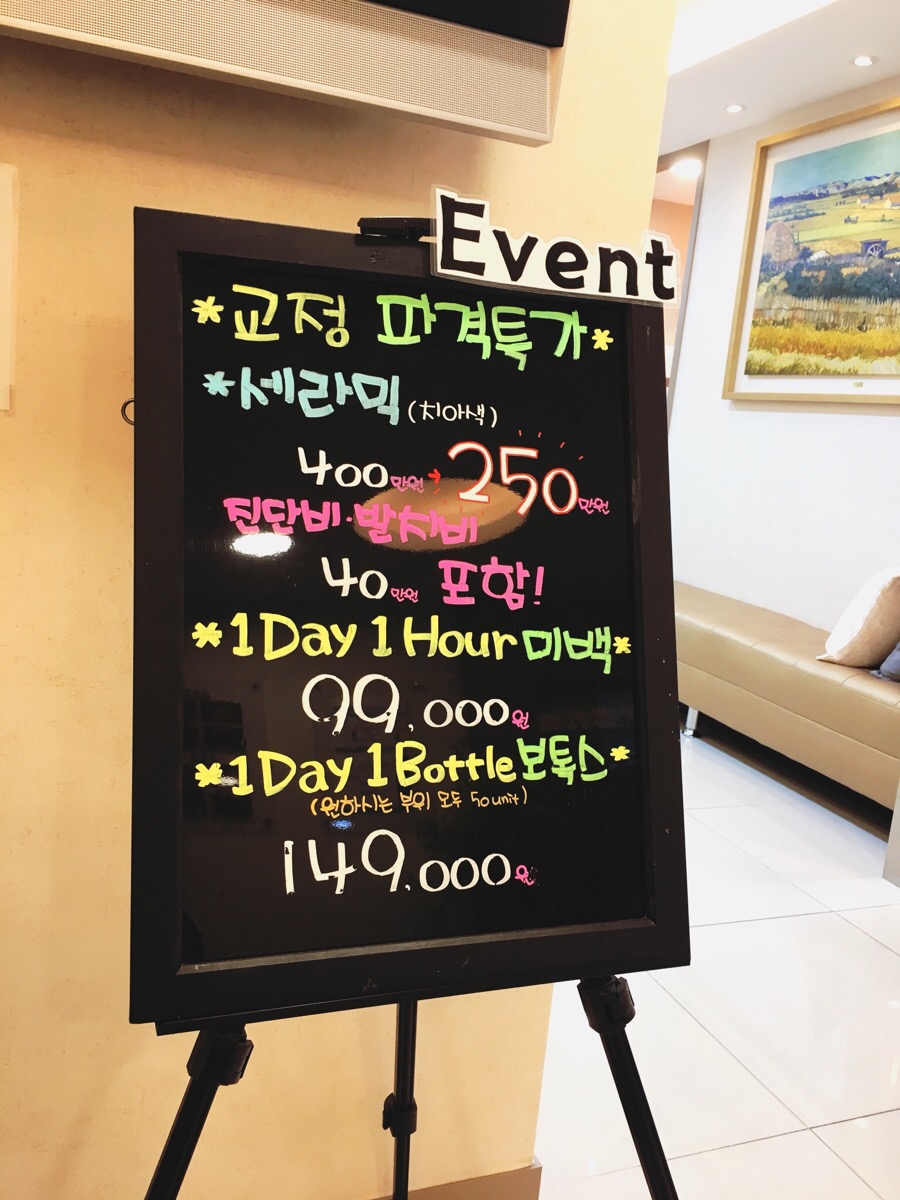 Event
*교정 파격특가*
*세라믹 (치아색)
400만원→250만원
진단비·발치비
40만원 포함!
*1Day 1Hour 미백*
99,000원
*1Day 1Bottle 보톡스*
(원하시는 부위 모두 50unit)
149,000원